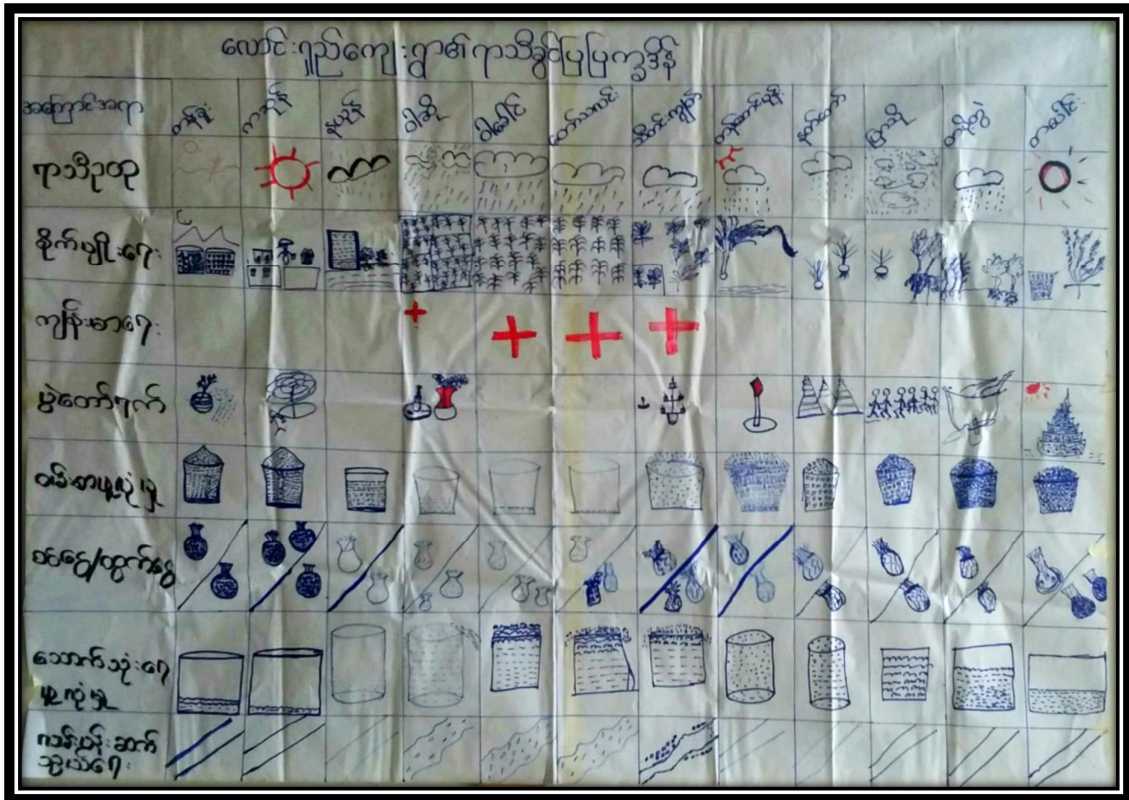 လောင်းရှည်ကျေးရွာ၏ရာသီခွင်ပြပြက္ခဒိန်
အကြောင်းအရာ တန်ခူး ကဆုန် နယုန် ဝါဆို ဝါခေါင် တော်သလင်း သီတင်းကျွတ် တန်ဆောင်မုန်း နတ်တော် ပြာသို တပို့တွဲ တပေါင်း
ရာသီဥတု
စိုက်ပျိုးရေး
ကျန်းမာရေး
ပွဲတော်ရက်
ဝမ်းစာဖူလုံမှု
ဝင်ငွေ/ထွက်ငွေ
သောက်သုံးရေ
ဖူလုံမှု
လမ်းပန်းဆက်
သွယ်ရေး